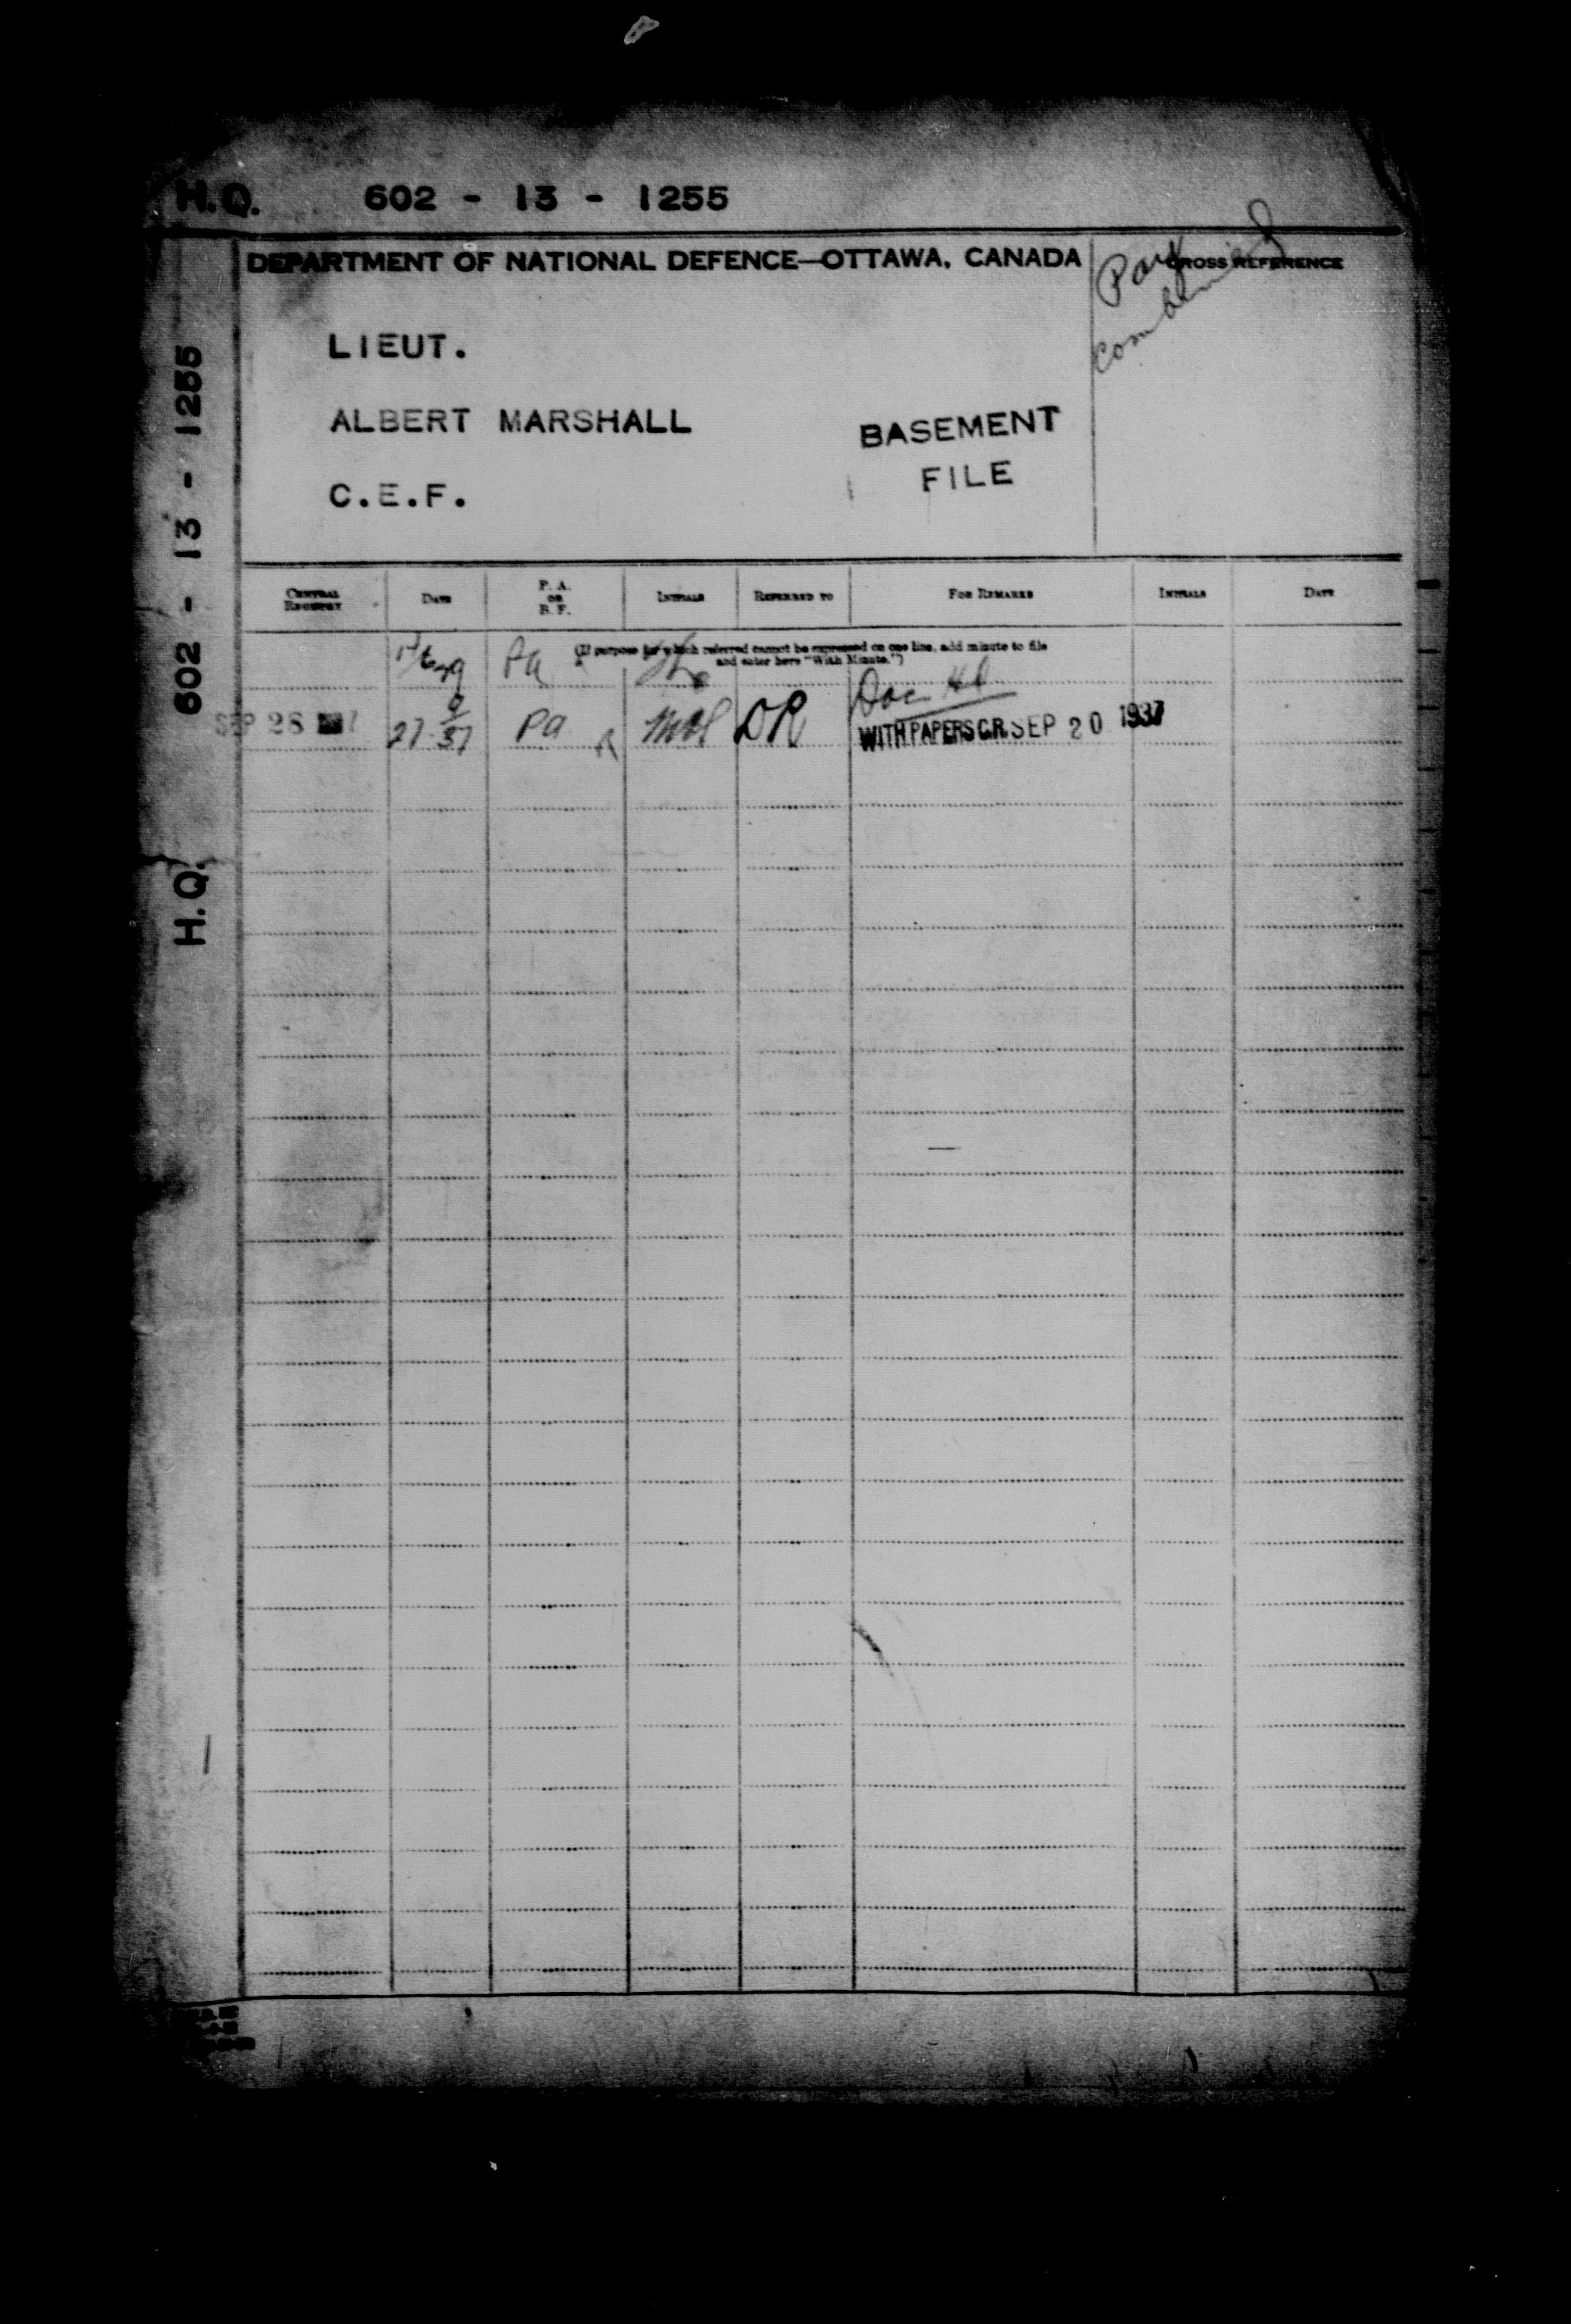 H.Q. 602 - 13 - 1255
DEPARTMENT OF NATIONAL DEFENCE—OTTAWA, CANADA
CROSS REFERENCE
Part
combined
LIEUT.
ALBERT MARSHALL
C.E.F.
BASEMENT
FILE
H.Q. 602 - 13 - 1255
CENTRAL REGISTRY DATE P. A. OR B. F. INITIALS REFERRED TO FOR REMARKS INITIALS DATE
(If purpose for which referred cannot be expressed on one line, add minute to file
and enter here "With Minute.")
Pa
SEP 28 27 9/37 Pa DR
WITH PAPERS C.R. SEP 20 1937